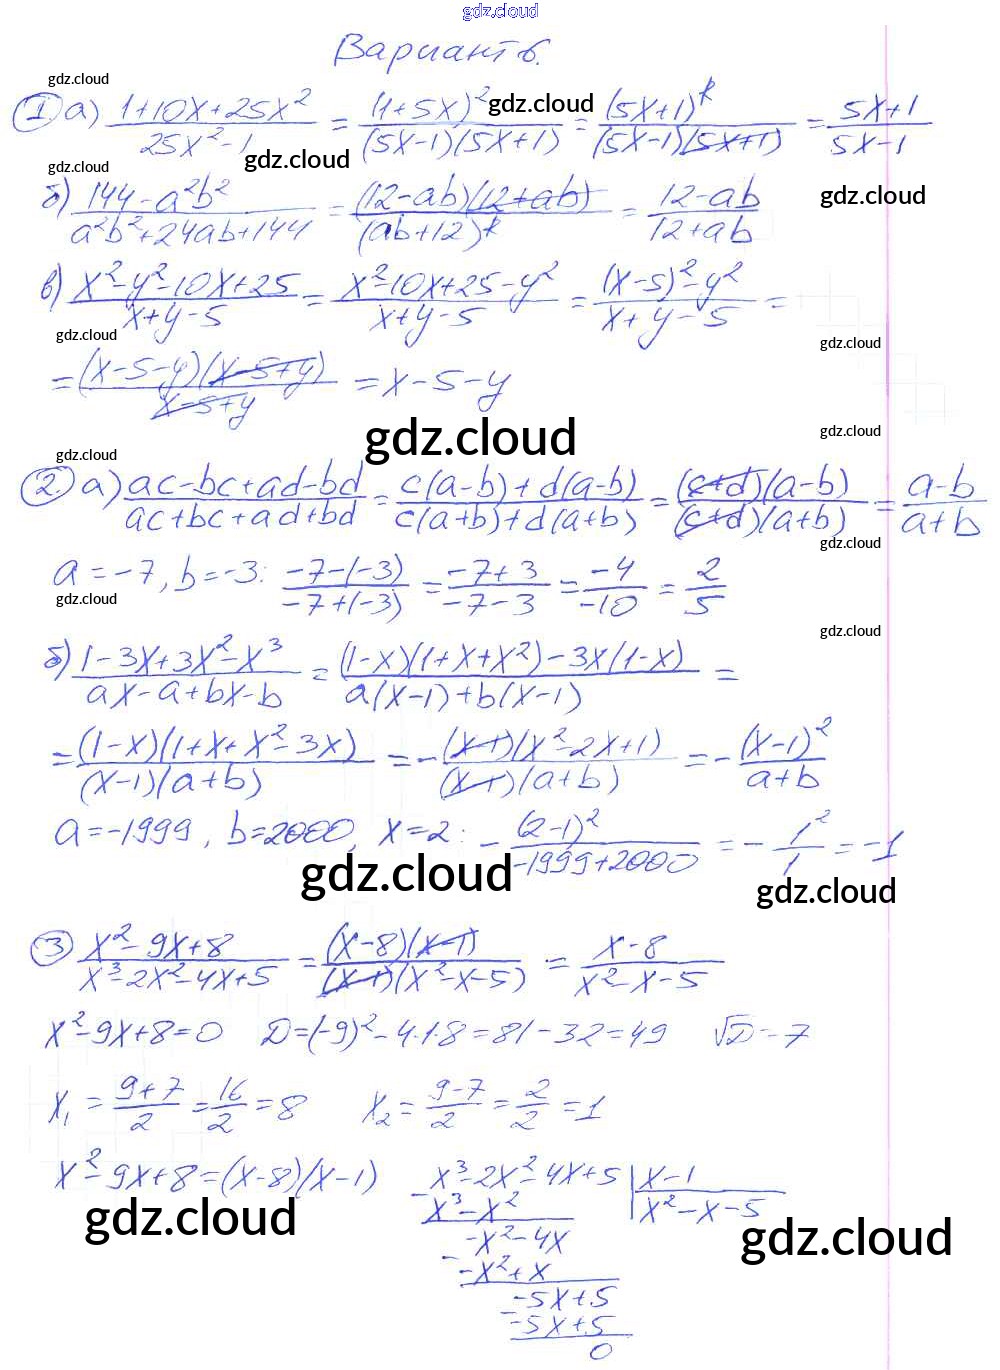 gdz.cloud
Вариант 6.
gdz.cloud
① а) (1+10x+25x²)/(25x²-1) = (1+5x)²/((5x-1)(5x+1)) = (5x+1)²/((5x-1)(5x+1)) = (5x+1)/(5x-1)
gdz.cloud
gdz.cloud gdz.cloud gdz.cloud
б) (144-a²b²)/(a²b²+24ab+144) = ((12-ab)(12+ab))/(ab+12)² = (12-ab)/(12+ab)
в) (x²-y²-10x+25)/(x+y-5) = (x²-10x+25-y²)/(x+y-5) = ((x-5)²-y²)/(x+y-5) =
gdz.cloud gdz.cloud
= ((x-5-y)(x-5+y))/(x-5+y) = x-5-y
gdz.cloud gdz.cloud
gdz.cloud
② а) (ac-bc+ad-bd)/(ac+bc+ad+bd) = (c(a-b)+d(a-b))/(c(a+b)+d(a+b)) = ((c+d)(a-b))/((c+d)(a+b)) = (a-b)/(a+b)
gdz.cloud
a=-7, b=-3: (-7-(-3))/(-7+(-3)) = (-7+3)/(-7-3) = (-4)/(-10) = 2/5
gdz.cloud
gdz.cloud
б) (1-3x+3x²-x³)/(ax-a+bx-b) = ((1-x)(1+x+x²)-3x(1-x))/(a(x-1)+b(x-1)) =
= ((1-x)(1+x+x²-3x))/((x-1)(a+b)) = -((x-1)(x²-2x+1))/((x-1)(a+b)) = -(x-1)²/(a+b)
a=-1999, b=2000, x=2: -(2-1)²/(-1999+2000) = -1²/1 = -1
gdz.cloud gdz.cloud
③ (x²-9x+8)/(x³-2x²-4x+5) = ((x-8)(x-1))/((x-1)(x²-x-5)) = (x-8)/(x²-x-5)
x²-9x+8=0 D=(-9)²-4·1·8=81-32=49 √D=7
x₁ = (9+7)/2 = 16/2 = 8 x₂ = (9-7)/2 = 2/2 = 1
x²-9x+8=(x-8)(x-1) x³-2x²-4x+5 | x-1
- x³-x² x²-x-5
gdz.cloud gdz.cloud
-x²-4x
- -x²+x
-5x+5
- -5x+5
0